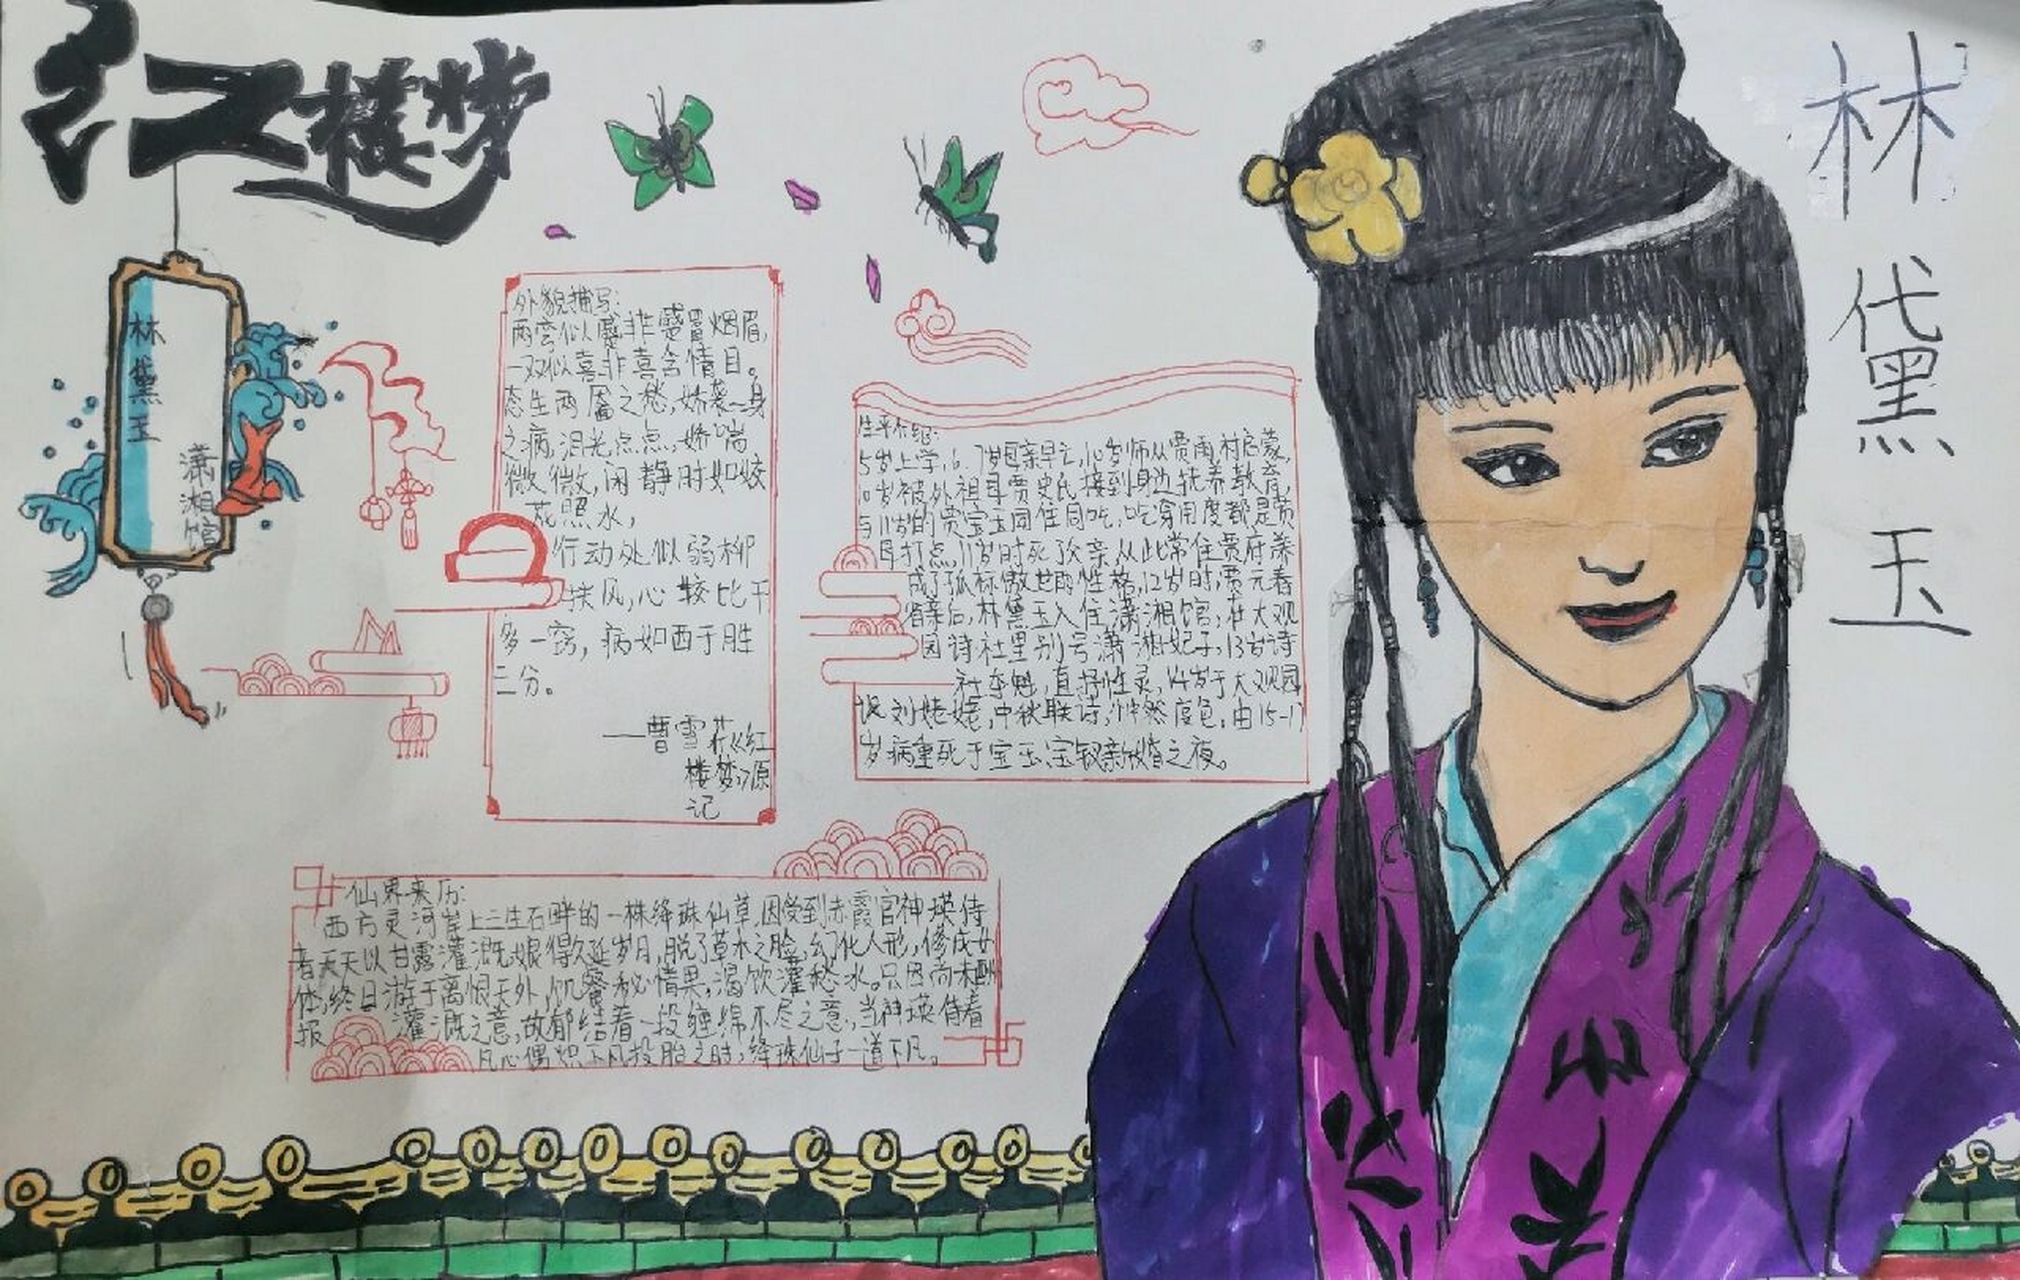 红楼梦
林黛玉
潇湘馆
外貌描写:
两弯似蹙非蹙罥烟眉,
一双似喜非喜含情目。
态生两靥之愁,娇袭一身
之病,泪光点点,娇喘
微微,闲静时如姣
花照水,
行动处似弱柳
扶风,心较比干
多一窍,病如西子胜
三分。
——曹雪芹《红
楼梦》原
记
生平介绍:
5岁上学,6、7岁母亲早亡,10岁师从贾雨村启蒙,
10岁被外祖母贾史氏接到身边抚养教育,
与11岁的贾宝玉同住同吃,吃穿用度都是贾
母打点,11岁时死了父亲,从此常住贾府养
成了孤标傲世的性格,12岁时,贾元春
省亲后,林黛玉入住潇湘馆,在大观
园诗社里别号潇湘妃子,13岁诗
社夺魁,直抒性灵,14岁于大观园
说刘姥姥,中秋联诗,怦然度色,由15-17
岁病重死于宝玉、宝钗新婚之夜。
仙界来历:
西方灵河岸上三生石畔的一株绛珠仙草,因受到赤霞宫神瑛侍
者天天以甘露灌溉,娘得久延岁月,脱了草木之胎,幻化人形,修成女
体,终日游于离恨天外,饥餐秘情果,渴饮灌愁水。只因尚未酬
报灌溉之意,故郁结着一投缠绵不尽之意,当神瑛侍者
凡心偶炽下凡投胎之时,绛珠仙子一道下凡。
林
黛
玉